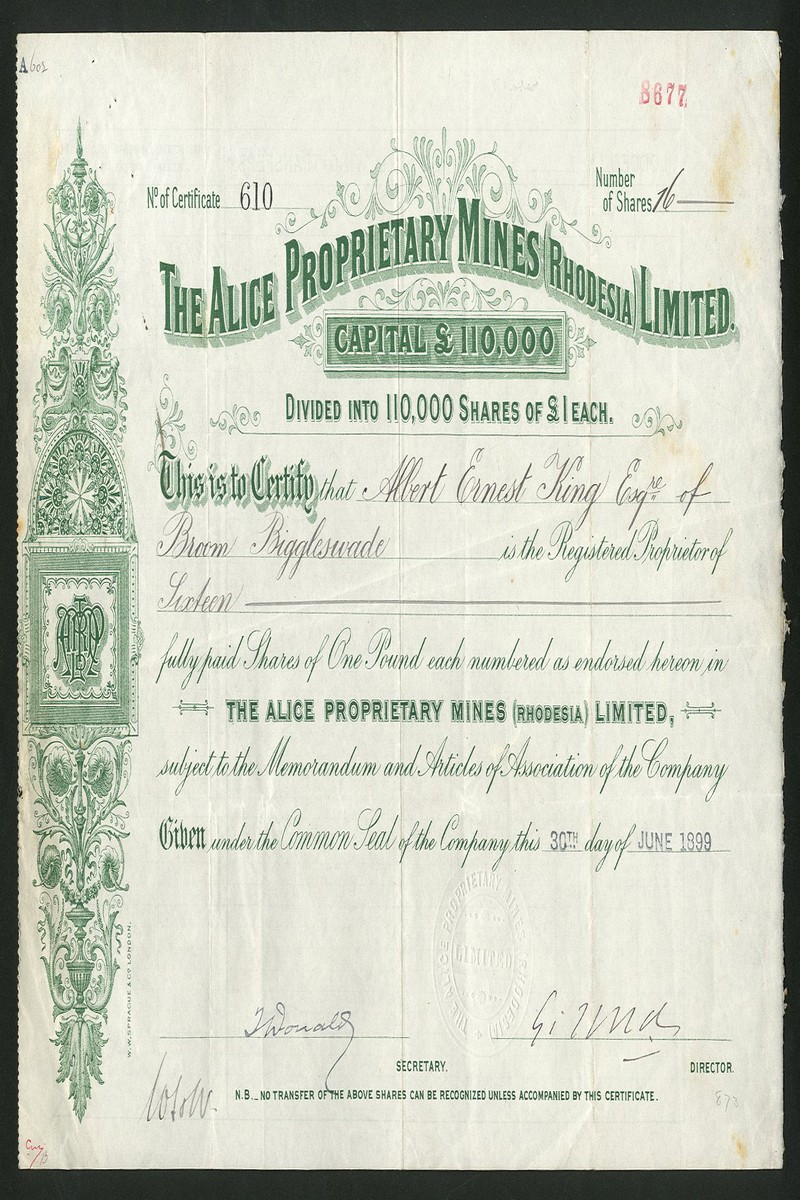 A602
8677
No. of Certificate 610
Number
of Shares 16
THE ALICE PROPRIETARY MINES (RHODESIA) LIMITED.
CAPITAL £110,000
DIVIDED INTO 110,000 SHARES OF £1 EACH.
This is to Certify that Albert Ernest King Esqre of
Broom Biggleswade is the Registered Proprietor of
Sixteen
fully paid Shares of One Pound each numbered as endorsed hereon, in
THE ALICE PROPRIETARY MINES (RHODESIA) LIMITED,
subject to the Memorandum and Articles of Association of the Company
Given under the Common Seal of the Company this 30TH day of JUNE 1899
THE ALICE PROPRIETARY MINES RHODESIA
LIMITED
W.W. SPRAGUE & CO LONDON.
SECRETARY.
DIRECTOR.
N.B._ NO TRANSFER OF THE ABOVE SHARES CAN BE RECOGNIZED UNLESS ACCOMPANIED BY THIS CERTIFICATE.
873